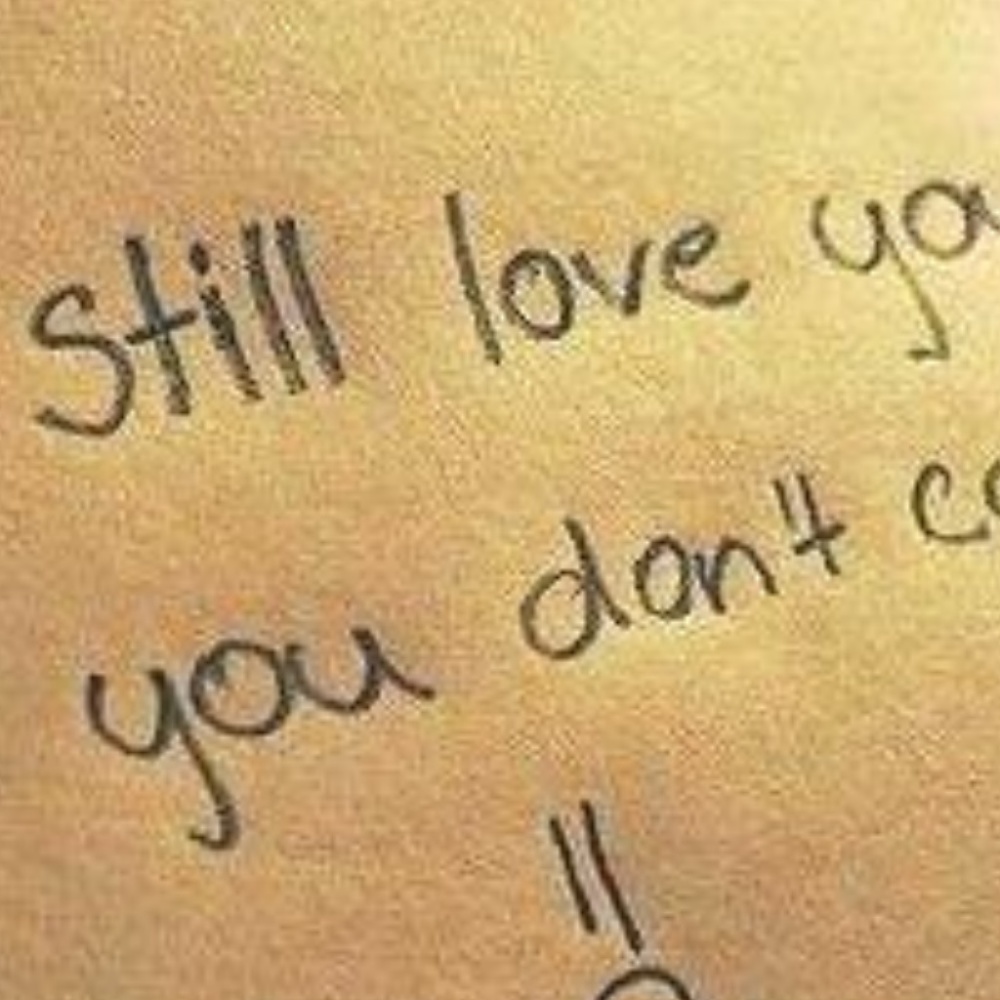 Still love yo
you don't c